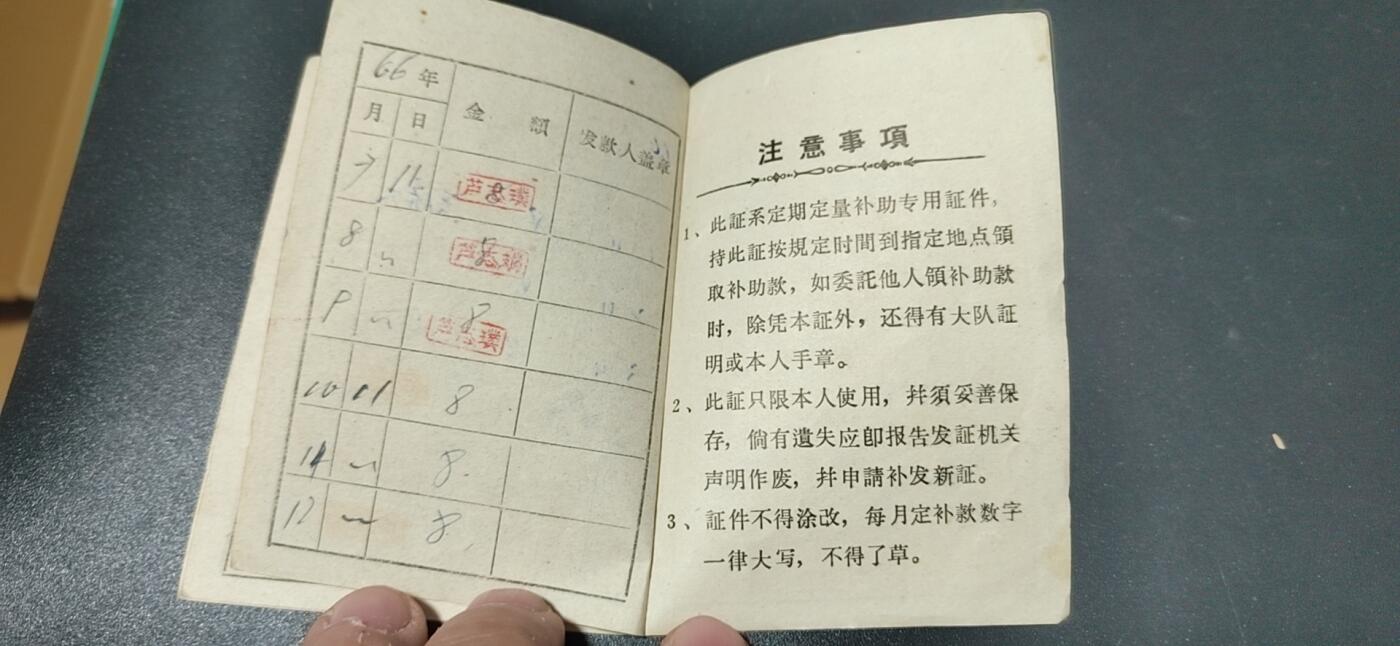 66年
月 日 金 額 发款人盖章
7 11 8
芦忠璞
8 〃 8
芦忠璞
9 〃 8
芦忠璞
10 11 8
11 〃 8
12 〃 8
注意事項
1、此証系定期定量补助专用証件，
持此証按規定时間到指定地点領
取补助款，如委託他人領补助款
时，除凭本証外，还得有大队証
明或本人手章。
2、此証只限本人使用，幷須妥善保
存，倘有遺失应卽报告发証机关
声明作废，幷申請补发新証。
3、証件不得涂改，每月定补款数字
一律大写，不得了草。